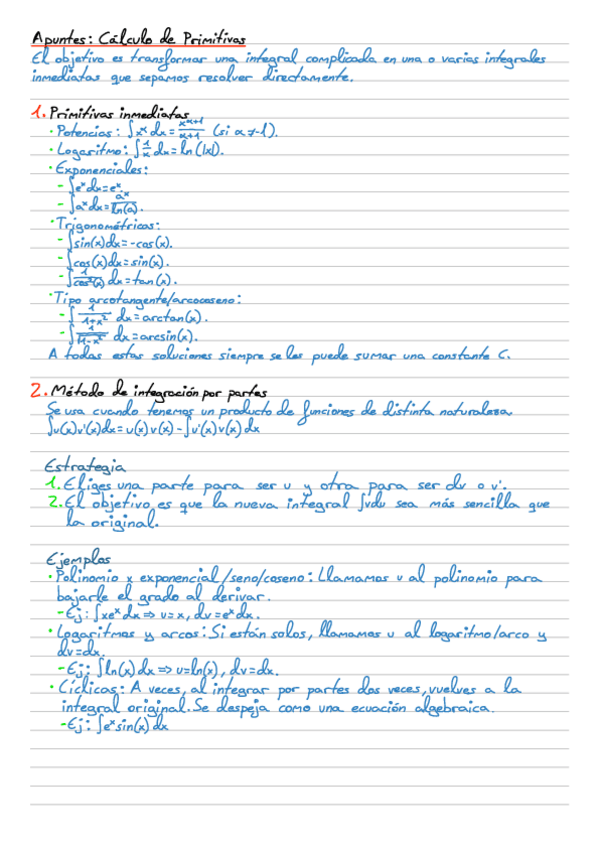 Apuntes: Cálculo de Primitivas
El objetivo es transformar una integral complicada en una o varias integrales
inmediatas que sepamos resolver directamente.
1. Primitivas inmediatas
· Potencias: ∫x^α dx = x^(α+1)/(α+1) (si α ≠ -1).
· Logaritmo: ∫1/x dx = ln(|x|).
· Exponenciales:
- ∫e^x dx = e^x.
- ∫a^x dx = a^x/ln(a).
· Trigonométricas:
- ∫sin(x)dx = -cos(x).
- ∫cos(x)dx = sin(x).
- ∫1/cos²(x) dx = tan(x).
· Tipo arcotangente/arcocoseno:
- ∫1/(1+x²) dx = arctan(x).
- ∫1/√(1-x²) dx = arcsin(x).
A todas estas soluciones siempre se les puede sumar una constante C.
2. Método de integración por partes
Se usa cuando tenemos un producto de funciones de distinta naturaleza.
∫u(x)v'(x)dx = u(x)v(x) - ∫u'(x)v(x)dx
Estrategia
1. Eliges una parte para ser u y otra para ser dv o v'.
2. El objetivo es que la nueva integral ∫vdu sea más sencilla que
la original.
Ejemplos
· Polinomio x exponencial/seno/coseno: Llamamos u al polinomio para
bajarle el grado al derivar.
- Ej: ∫xe^x dx ⇒ u=x, dv=e^x dx.
· Logaritmos y arcos: Si están solos, llamamos u al logaritmo/arco y
dv=dx.
- Ej: ∫ln(x)dx ⇒ u=ln(x), dv=dx.
· Cíclicas: A veces, al integrar por partes dos veces, vuelves a la
integral original. Se despeja como una ecuación algebraica.
- Ej: ∫e^x sin(x)dx